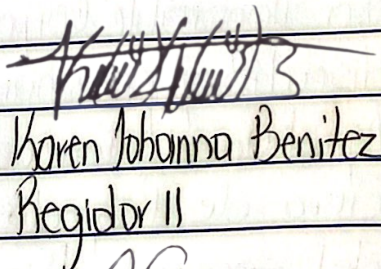 Karen Johanna Benitez
Regidor II